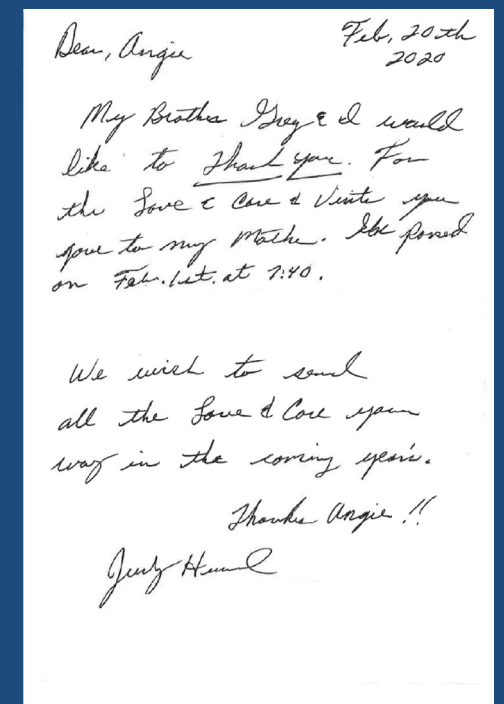 Feb, 20th
2020
Dear, Angie
My Brother Greg & I would
like to Thank you. For
the Love & Care & Visits you
gave to my Mother. She passed
on Feb. 1st. at 7:40.
We wish to send
all the Love & Care your
way in the coming years.
Thanks Angie !!
Judy